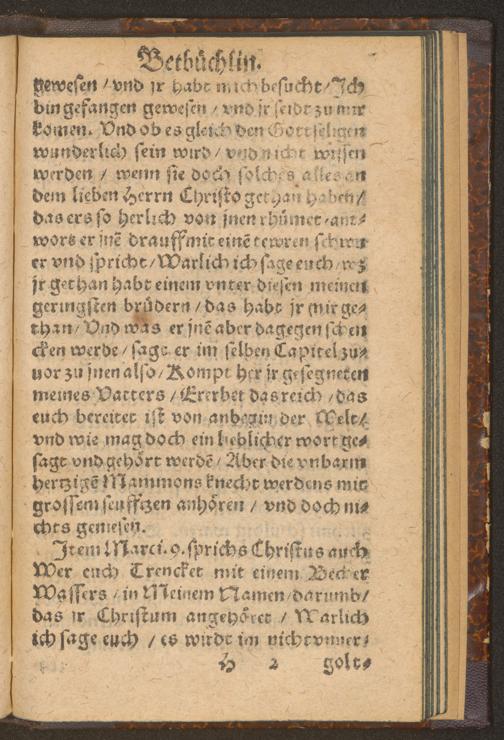 Betbüchlin.
gewesen / vnd jr habt mich besucht / Ich
bin gefangen gewesen / vnd jr seidt zu mir
komen. Vnd ob es gleich den Gottseligen
wunderlich sein wird / vnd nicht wissen
werden / wenn sie doch solches alles an
dem lieben Herrn Christo gethan haben /
das ers so herlich von jnen rhümet / ant⸗
wort er jnē drauff mit einē tewren schwu
er vnd spricht / Warlich ich sage euch / wz
jr gethan habt einem vnter diesen meinen
geringsten brüdern / das habt jr mir ge⸗
than / Vnd was er jnē aber dagegen schen
cken werde / sagt er im selben Capitel zu⸗
uor zu jnen also / Kompt her jr gesegneten
meines Vatters / Ererbet das reich / das
euch bereitet ist von anbegin der Welt /
vnd wie mag doch ein lieblicher wort ge⸗
sagt vnd gehört werdē / Aber die vnbarm
hertzigē Mammons knecht werdens mit
grossem seufftzen anhören / vnd doch ni⸗
chts geniesen.
Item Marci. 9. sprichs Christus auch
Wer euch Trencket mit einem Becher
Wassers / in Meinem Namen / darumb /
das jr Christum angehöret / Warlich
ich sage euch / es wirdt im nicht vnuer⸗
H 2 golt⸗